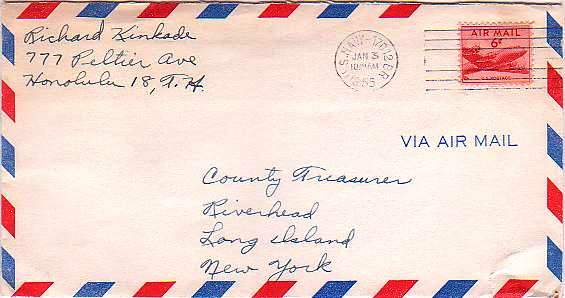 Richard Kinkade
777 Peltier Ave
Honolulu 18, T.H.
U.S. NAVY-17012 BR.
JAN 3
1955
AIR MAIL
6¢
U.S. POSTAGE
VIA AIR MAIL
County Treasurer
Riverhead
Long Island
New York